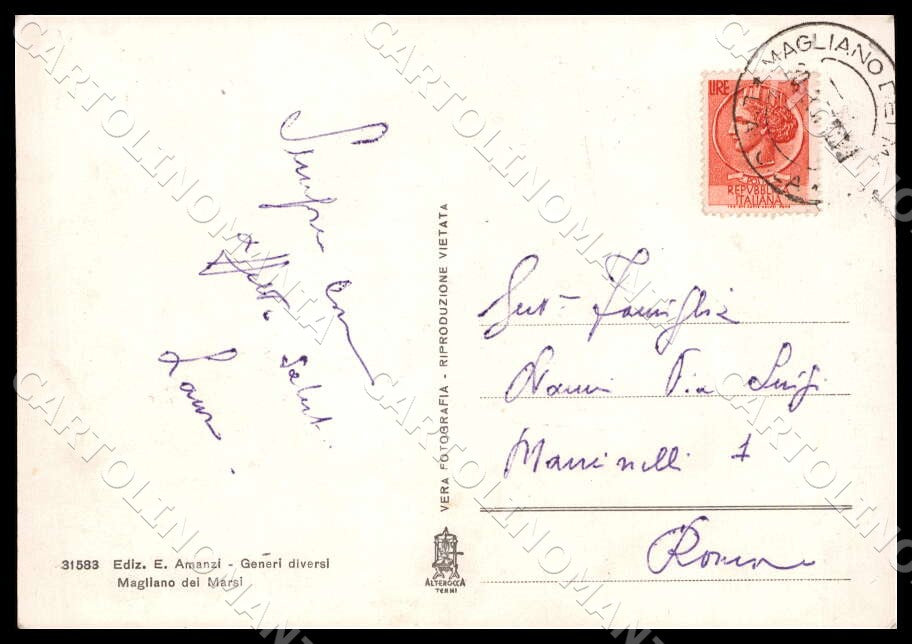 Sempre con
affetto saluti
Laura
VERA FOTOGRAFIA - RIPRODUZIONE VIETATA
LIRE
REPVBBLICA
ITALIANA
MAGLIANO DE
Gent- Famiglia
Nanni Via Luigi
Mancinelli 1
Roma
31583 Ediz. E. Amanzi - Generi diversi
Magliano dei Marsi
ALTEROCCA
TERNI
CARTOLINOMANIA